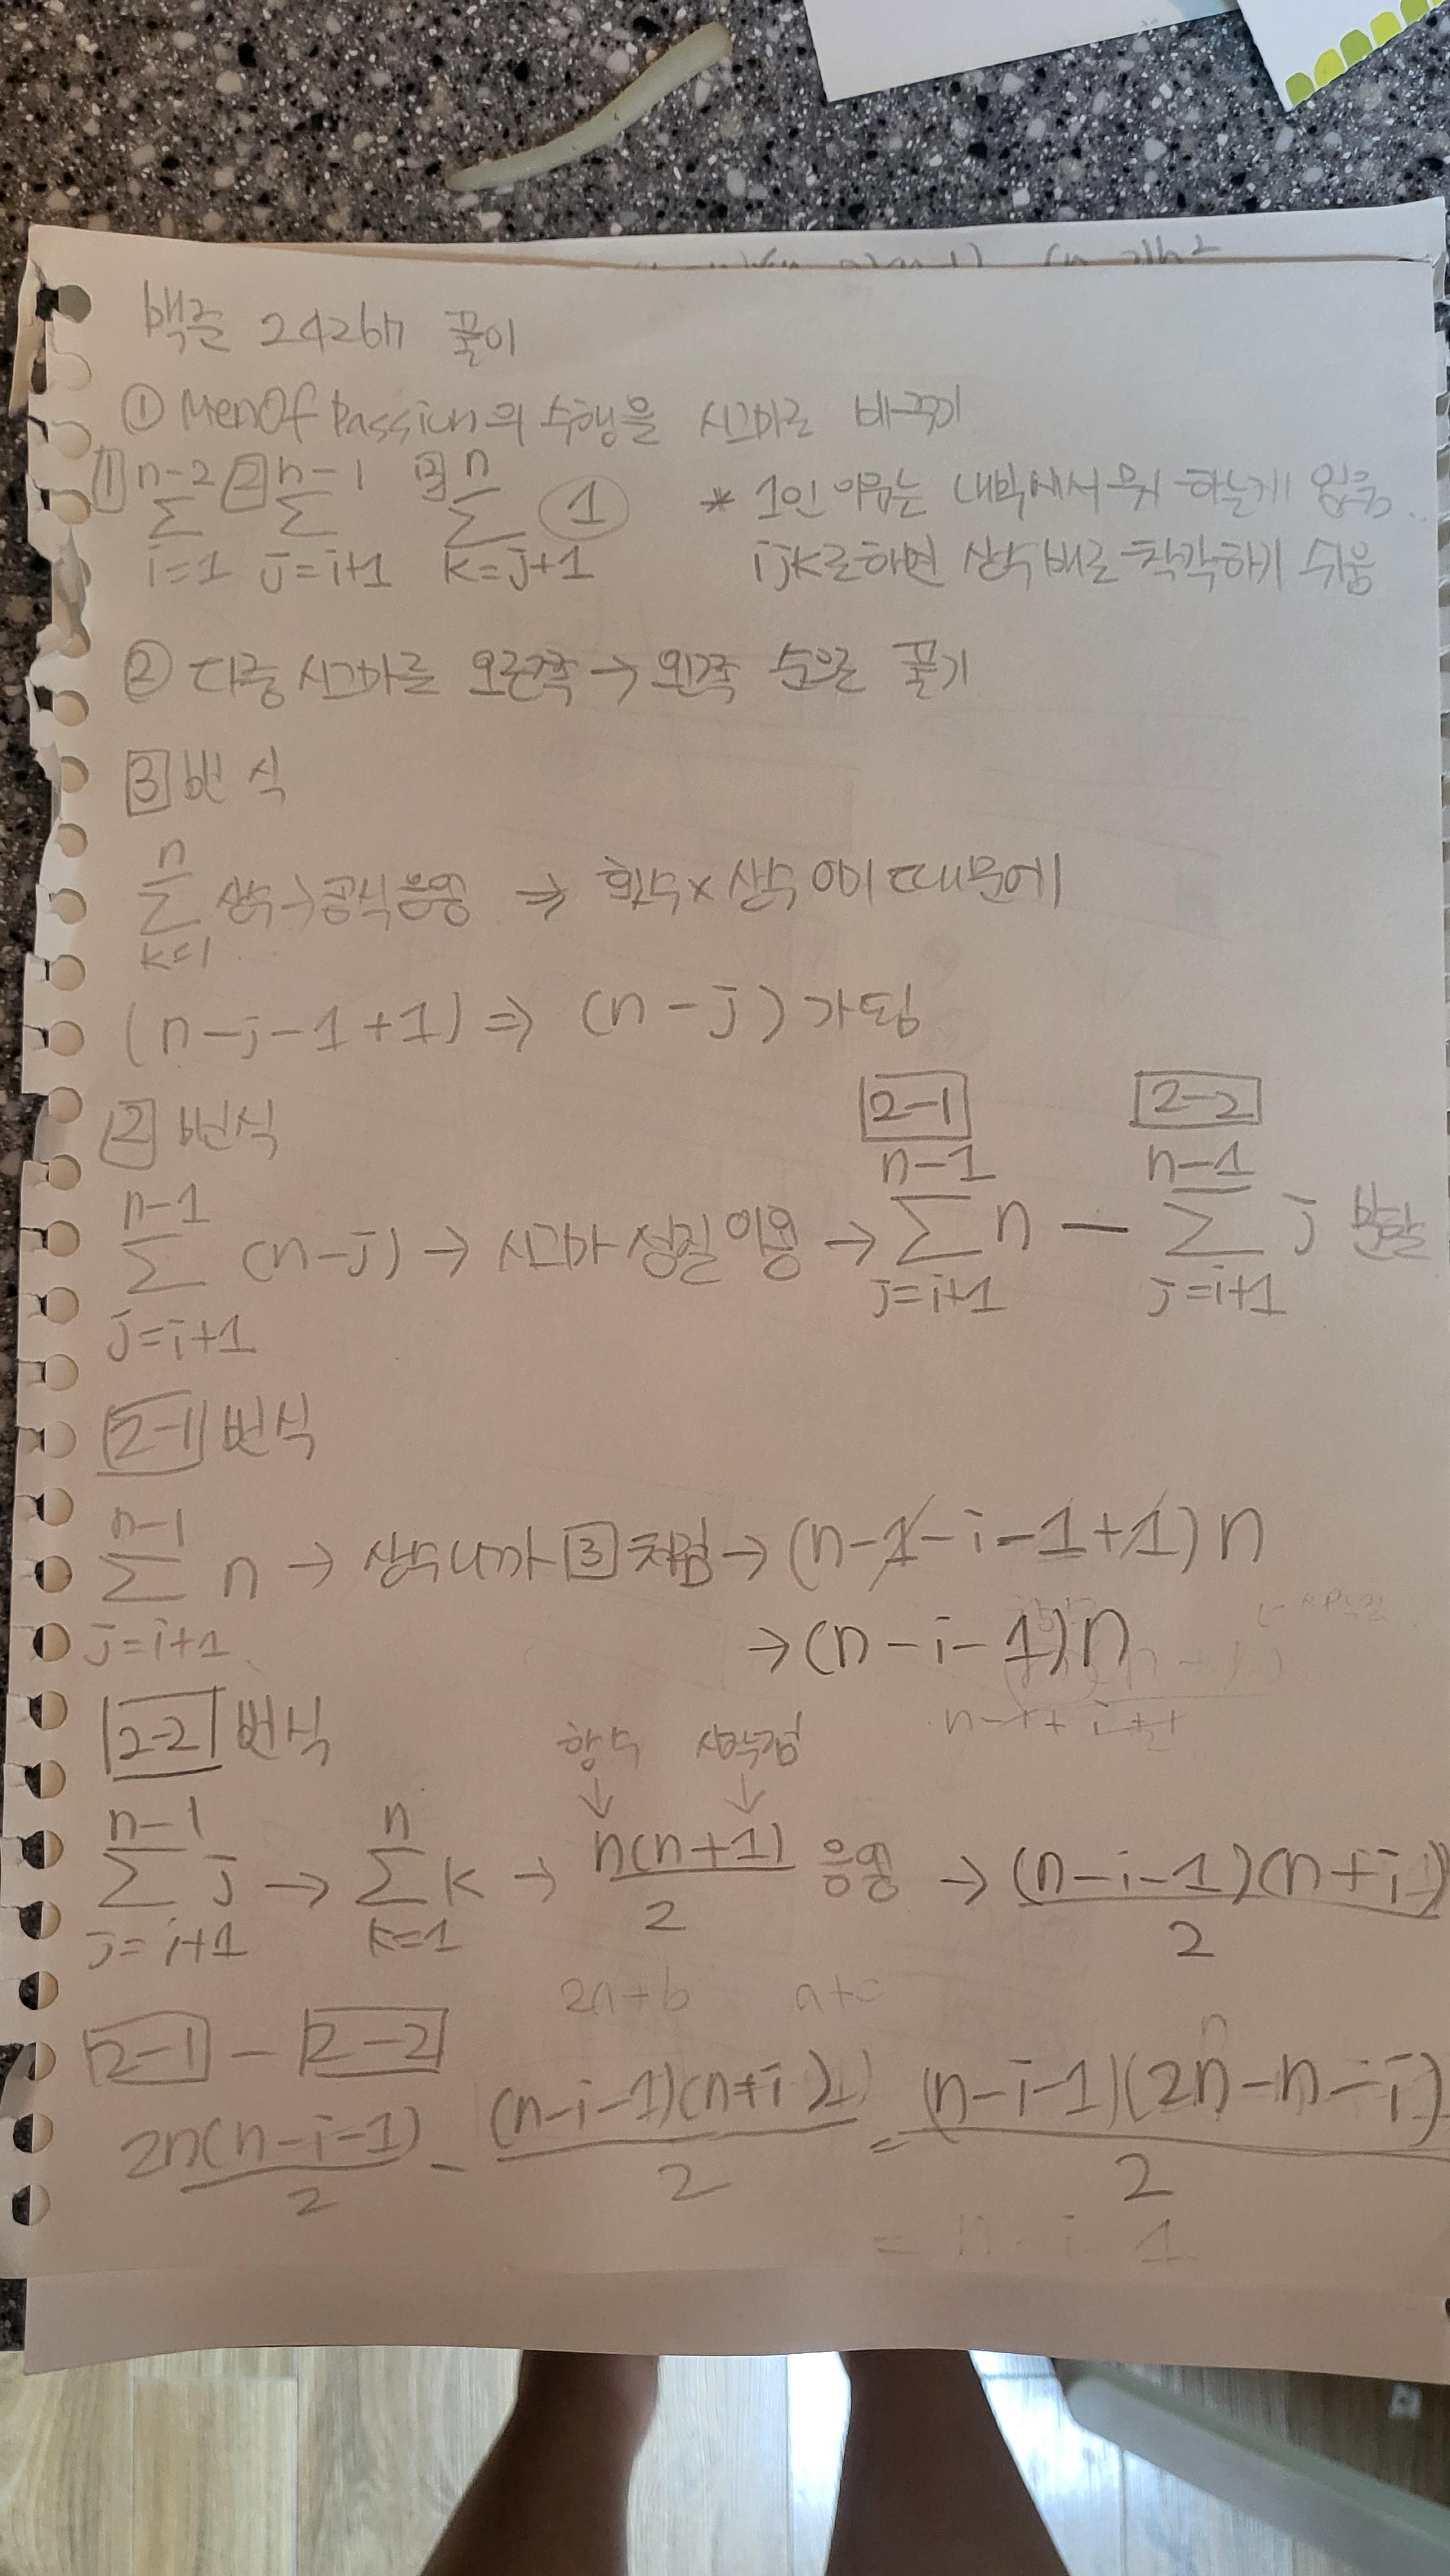 백준 24267 풀이
① MenOfPassion의 수행을 시그마로 바꾸기
[1] n-2 Σ i=1 [2] n-1 Σ j=i+1 [3] n Σ k=j+1 ① * 1인 이유는 내부에서 뭐 하는게 없음.
ijk로하면 상수배로 착각하기 쉬움
② 다중 시그마를 오른쪽→왼쪽 순으로 풀기
[3]번 식
n Σ k=1 상수→공식응용 ⇒ 횟수×상수 이기 때문에
(n-j-1+1) ⇒ (n-j)가 됨
[2] 번식
n-1 Σ j=i+1 (n-j) → 시그마 성질 이용 → [2-1] n-1 Σ j=i+1 n - [2-2] n-1 Σ j=i+1 j 분할
[2-1]번식
n-1 Σ j=i+1 n → 상수니까 [3]처럼 → (n-1-i-1+1)n
→ (n-i-1)n
[2-2]번식
항수 시작점
↓ ↓
n-1 Σ j=i+1 j → n Σ k=1 k → n(n+1)/2 응용 → (n-i-1)(n+i)/2
2n+b a+c
[2-1] - [2-2]
2n(n-i-1)/2 - (n-i-1)(n+i)/2 = (n-i-1)(2n-n-i)/2